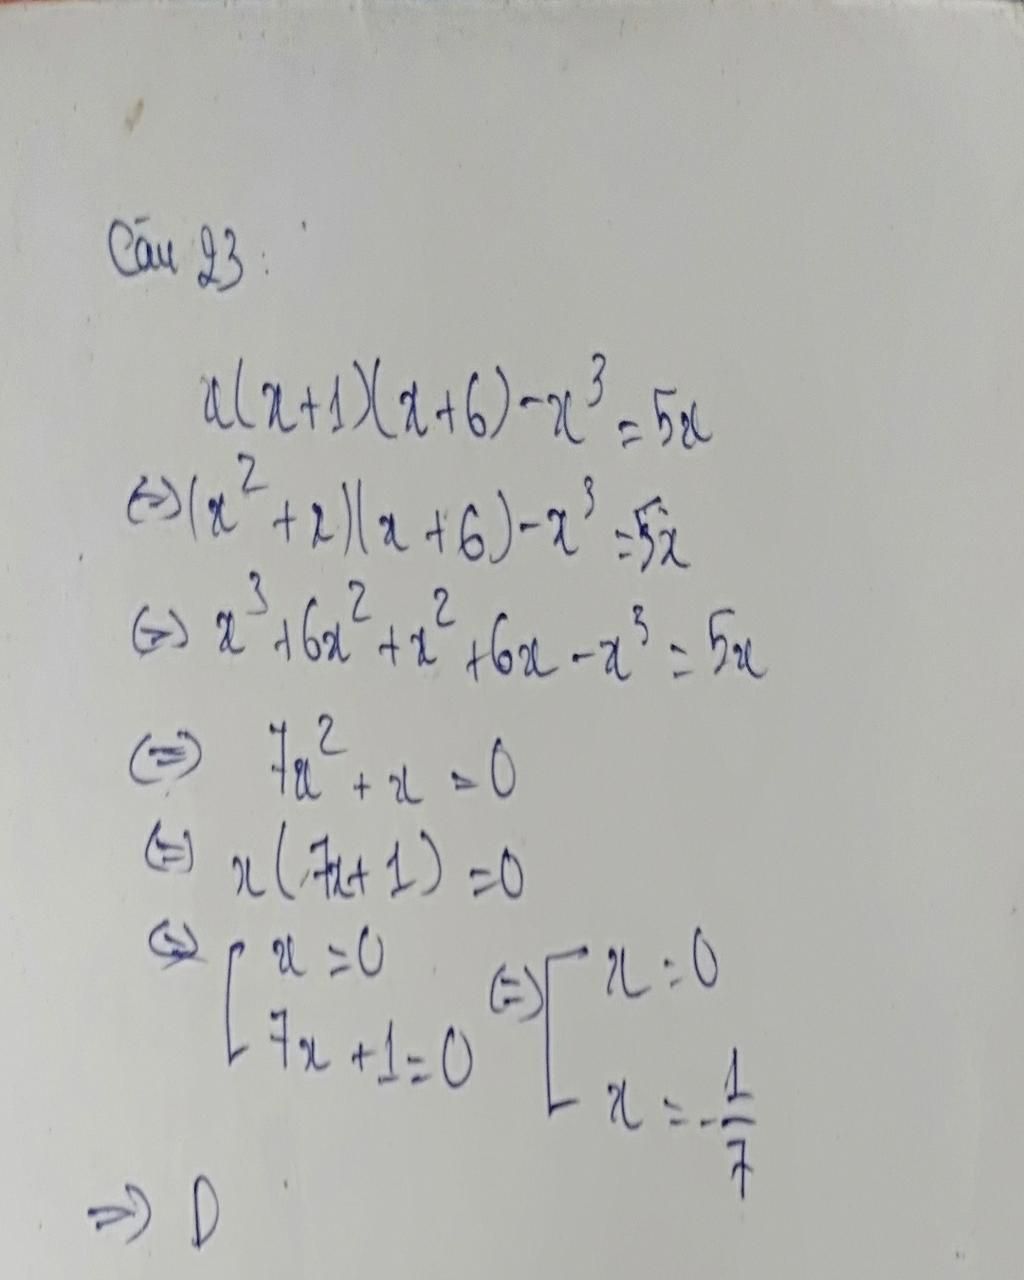 Câu 23:
x(x+1)(x+6)-x³=5x
(=)(x²+x)(x+6)-x³=5x
(=) x³+6x²+x²+6x-x³=5x
(=) 7x²+x=0
(=) x(7x+1)=0
(=) [x=0 (=) [x=0
7x+1=0 x=-1/7
=) D